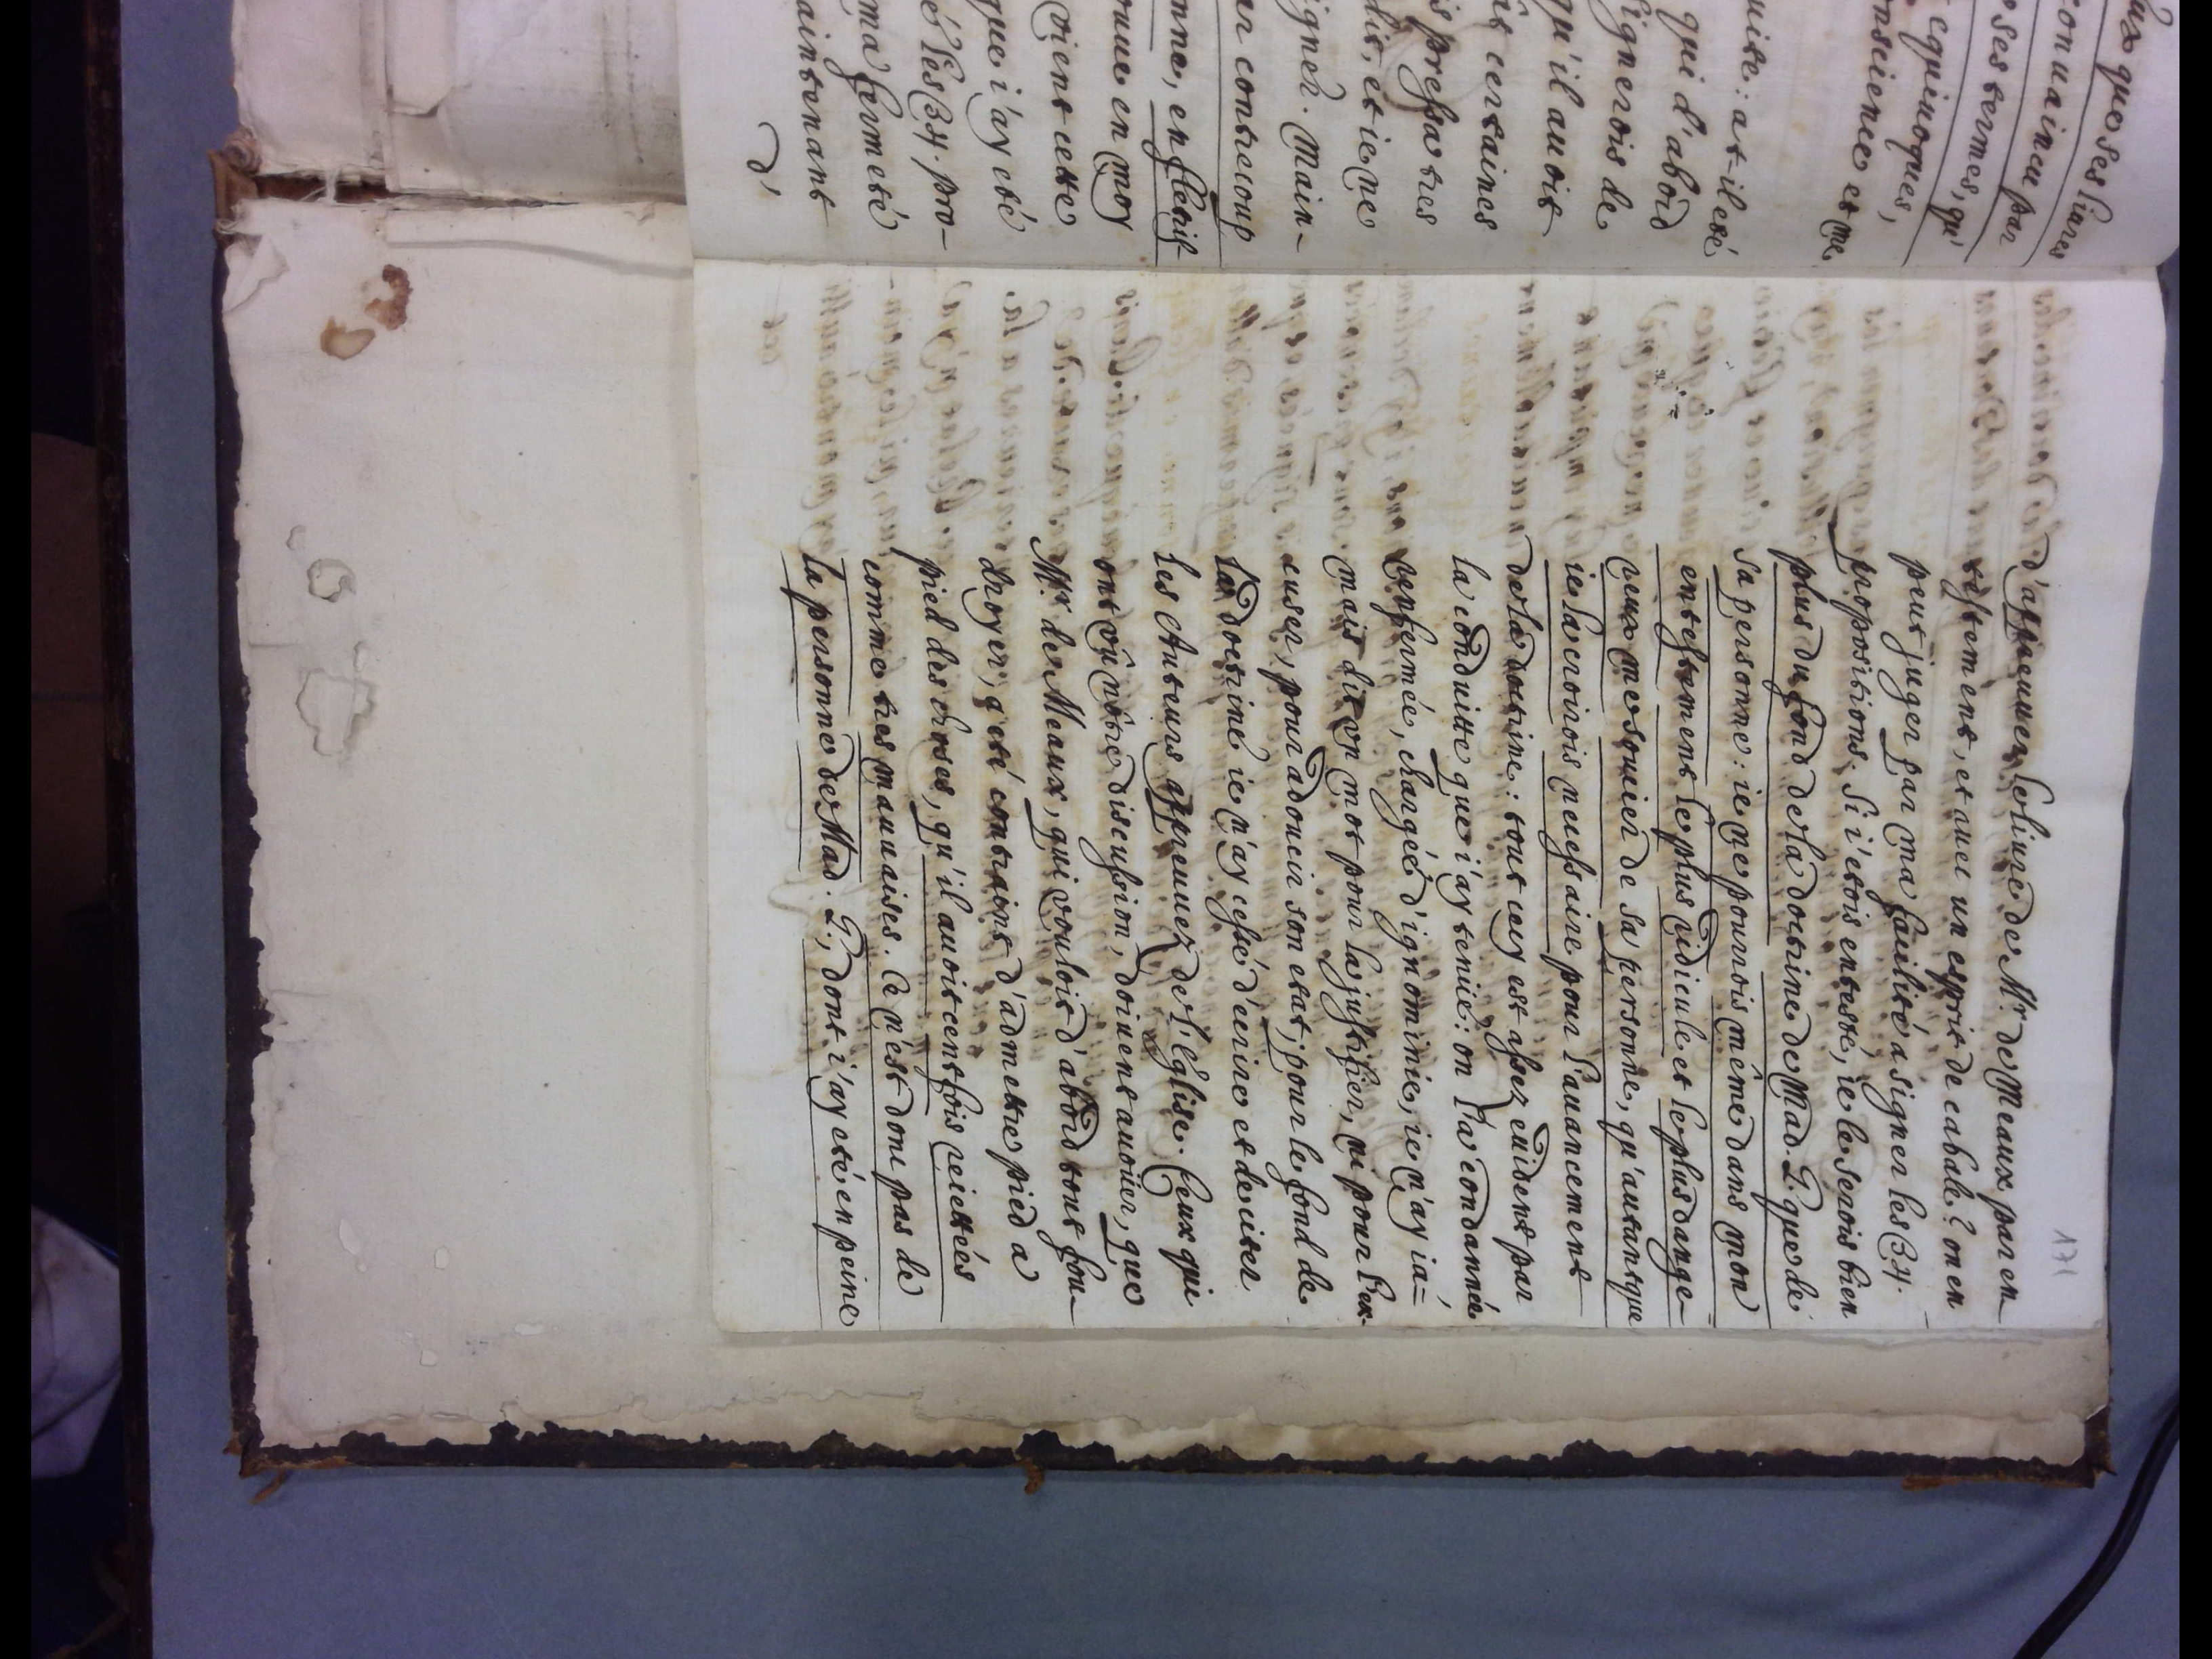 ux que ses liures
conuaincu par
ses termes, qu'
equiuoques,
onscience et me
uite: at-il eté
qui d'abord
signerois de
qu'il auoit
certaines
s pressa tres
dis, et ie ne
igner. Main-
ar contrecoup
nne, en flétrist
oue en moy
vient cette
que i'ay eté
é les 34. pro-
ma fermeté
aintenant
d'
171
d'approuuer le liure de Mr. de Meaux par en-
testement, et auec un esprit de cabale? on en
peut juger par ma facilité a signer les 34.
propositions. Si i'etois entesté, ie le serois bien
plus du fond de la doctrine de Mad. G. que de
sa personne: ie ne pourrois même dans mon
entestement le plus ridicule et le plus dange-
reux me soucier de sa personne, qu'autant que
ie la croirois necessaire pour l'auancement
de la doctrine: tout cecy est assez euident par
la conduitte que i'ay tenüe: on l'a condannée
renfermée, chargée d'ignominie, ie n'ay ia=
mais dit un mot pour la justifier, ni pour l'ex-
cuser, pour adoucir son etat; pour le fond de
la doctrine ie n'ay cessé d'ecrire et de citer
les Auteurs approuuez de l'Eglise. Ceux qui
ont vû nôtre discussion, doiuent auoüer, que
Mr. de Meaux, qui vouloit d'abord tout fou-
droyer, a eté contraint d'admettre pied a
pied des choses, qu'il auoit cent fois reiettées
comme tres mauuaises. Ce n'est donc pas de
la personne de Mad. G., dont i'ay eté en peine